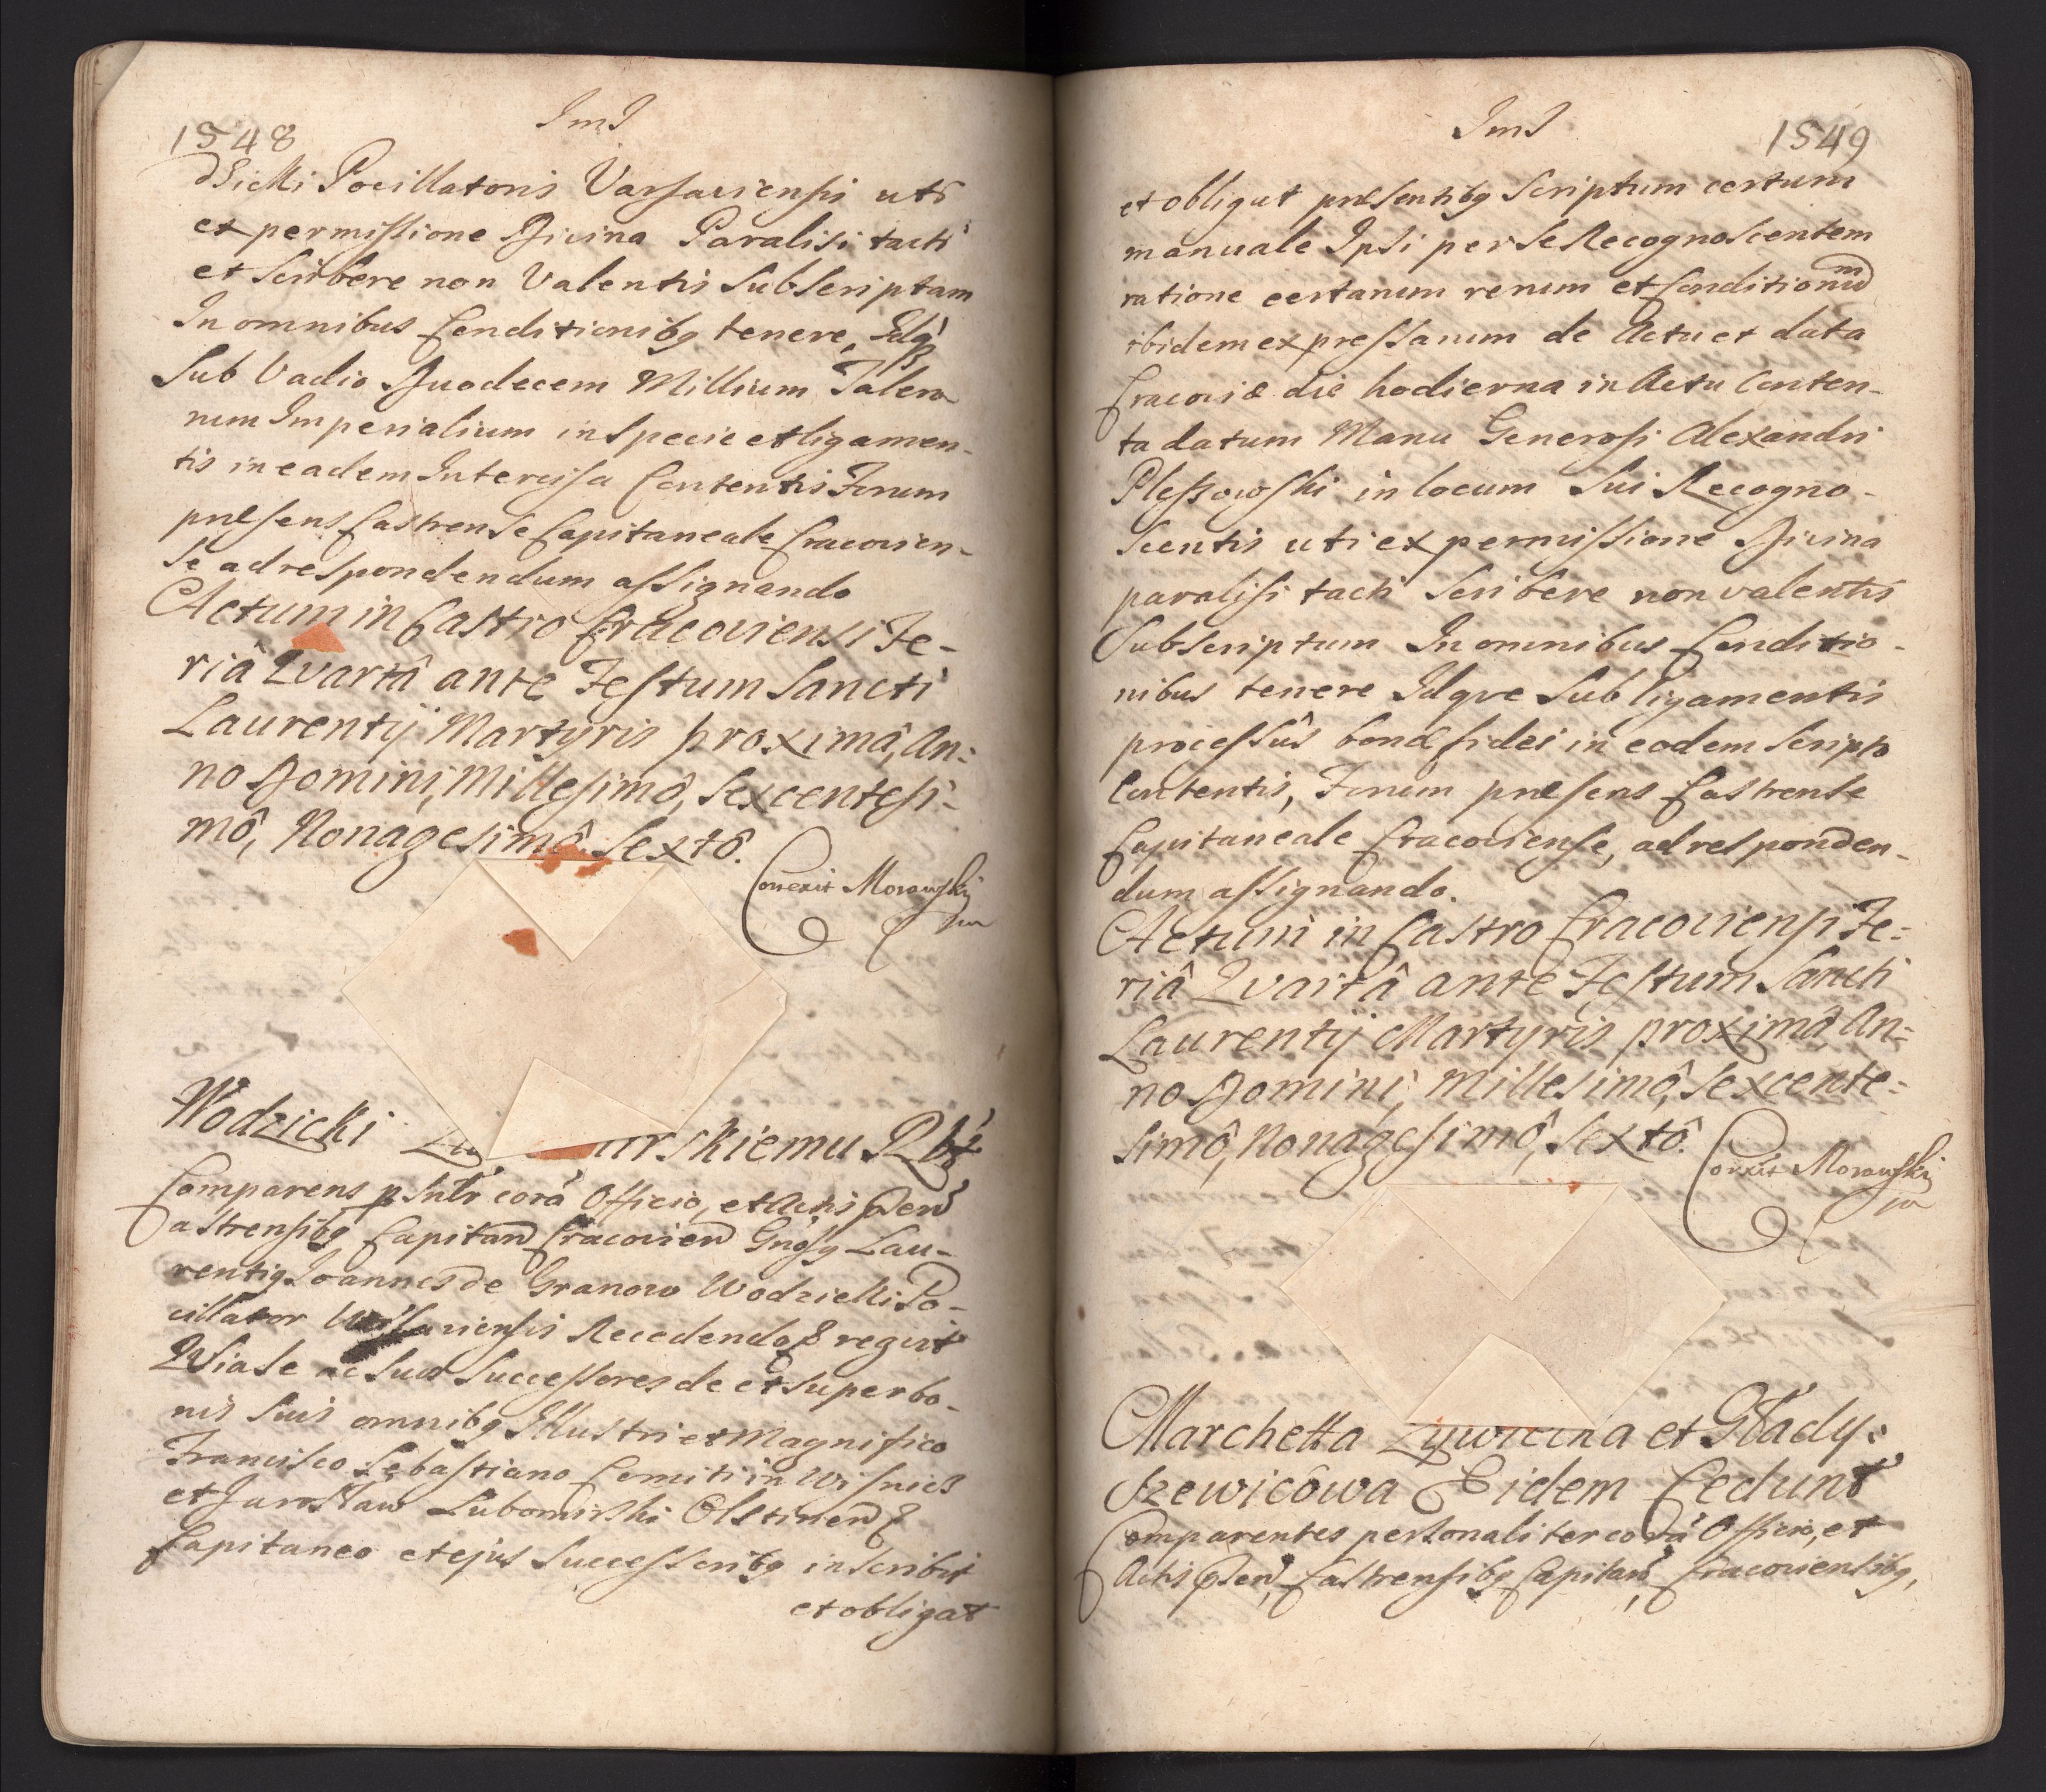 1548
ImI
dzicki Pocillatoris Varsaviensis uti
ex permissione Divina Paralisi tacti
et scribere non Valentis subscriptam
In omnibus Conditionibq tenere, Idq
sub Vadio Duodecem Millium Talero
rum Imperialium in specie et ligamen-
tis in eadem Intercisa Contentis Forum
præsens Castrense Capitaneale Cracovien-
se ad respondendum assignando
Actum in Castro Cracoviensi Fe-
riâ Qvartâ ante Festum Sancti
Laurentij Martyris proximâ, An:
no Domini, Millesimô, Sexcentesi-
mô, Nonagesimô Sextô.
Correxit Morawski
Wodzicki
rskiemu
Comparens psntr corã Officio, et Actis Psen
Castrensibq Capitan Cracovien Gnosq Lau-
rentiq Joannes de Granow Wodzicki Po-
cillator recedendo & regirit
Qvia se ac suos Successores de et super bo-
nis suis omnibq Illustri et Magnifico
Francisco Sebastiano Comiti in Wisnicz
et Jarosław Lubomirski Olstinen &
Capitaneo et ejus Successoribq inscribit
et obligat
ImI
1549
et obligat præsentibq scriptum certum
manuale Ipsi per se Recognoscentem
ratione certarum rerum et Conditionum
ibidem expressarum de Actu et data
Cracoviæ die hodierna in Actu Conten-
ta datum Manu Generosi Alexandri
Pleszowski in locum sui Recogno-
scentis uti ex permissione Divina
paralisi tacti scribere non valentis
Subscriptum In omnibus Conditio-
nibus tenere Idqve sub ligamentis
processûs bonæ fidei in eodem scripto
Contentis, Forum præsens Castrense
Capitaneale Cracoviense, ad responden-
dum assignando.
Actum in Castro Cracoviensi Fe:
riâ Qvartâ ante Festum Sancti
Laurentij Martyris proximâ, An:
no Domini, Millesimô, Sexcente:
simô, Nonagesimô, Sextô.
Correxit Morawski
Marchetta Zywiccina et Głady:
szewicôwa Eidem Cedunt
Comparentes personaliter corã Officio, et
Actis Psen, Castrensibq Capitan, Cracoviensibq,